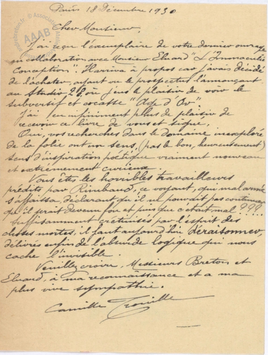 Paris 18 Décembre 1930
Cher Monsieur,
J'ai reçu l'exemplaire de votre dernier ouvrage
en collaboration avec Monsieur Eluard L'Immaculée
Conception. Il arrive à propos car j'avais décidé
de l'acheter, ayant vu le prospectus l'annonçant
au Studio 28, où j'eus le plaisir de voir le
subversif et cocasse "Age d'Or".
J'ai infiniment plus de plaisir de
recevoir ce livre de vous et signé.
Oui, vos recherches dans le domaine inexploré
de la folie ont un sens, (pas le bon, heureusement)
sens d'inspiration poétique vraiment nouveau
et extrêmement curieux.
Vous êtes les horribles travailleurs
prédits par Rimbaud, ce voyant, qui mal armé
s'affaissa déclarant qu'il ne pouvait pas continuer
qu'il serait devenu fou
systématiquement crétinisés par l'esprit des
lettres mortes, il faut aujourd'hui Déraisonner,
délivrés enfin de l'absurde logique qui nous
cache l'invisible.
Veuillez croire, Messieurs Breton et
Eluard, à ma reconnaissance et à ma
plus vive sympathie.
Camille